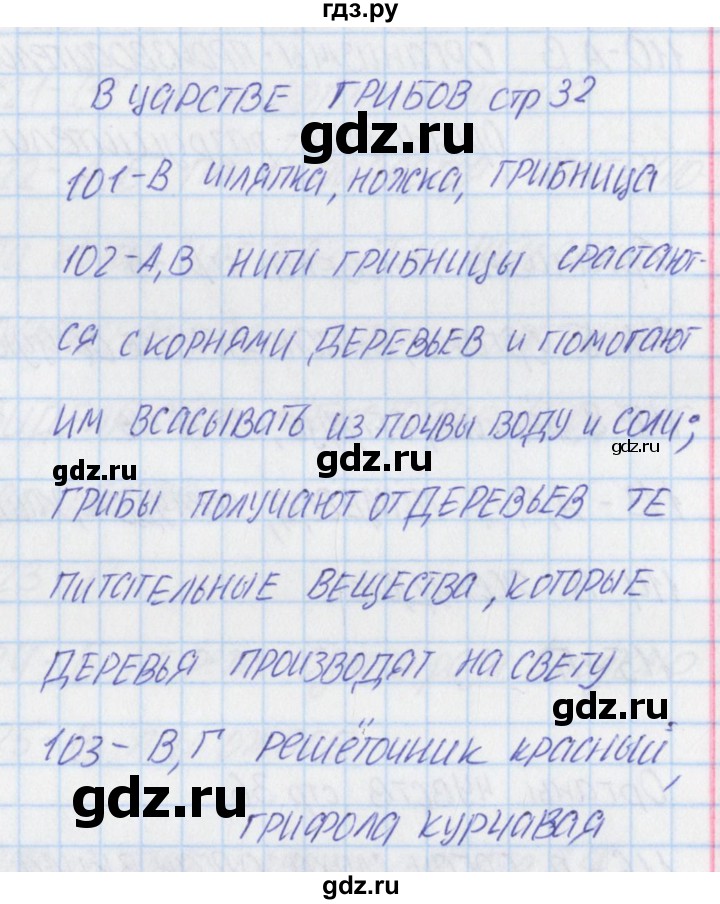 гдз.ру
В ЦАРСТВЕ ГРИБОВ стр 32
gdz.ru
101-В ШЛЯПКА, НОЖКА, ГРИБНИЦА
102-А,В НИТИ ГРИБНИЦЫ СРАСТАЮТ-
СЯ С КОРНЯМИ ДЕРЕВЬЕВ И ПОМОГАЮТ
ИМ ВСАСЫВАТЬ ИЗ ПОЧВЫ ВОДУ И СОЛИ;
gdz.ru gdz.ru gdz.ru
ГРИБЫ ПОЛУЧАЮТ ОТ ДЕРЕВЬЕВ ТЕ
ПИТАТЕЛЬНЫЕ ВЕЩЕСТВА, КОТОРЫЕ
ДЕРЕВЬЯ ПРОИЗВОДЯТ НА СВЕТУ
gdz.ru
103- В,Г РЕШЁТОЧНИК КРАСНЫЙ,
gdz.ru
ГРИФОЛА КУРЧАВАЯ
gdz.ru